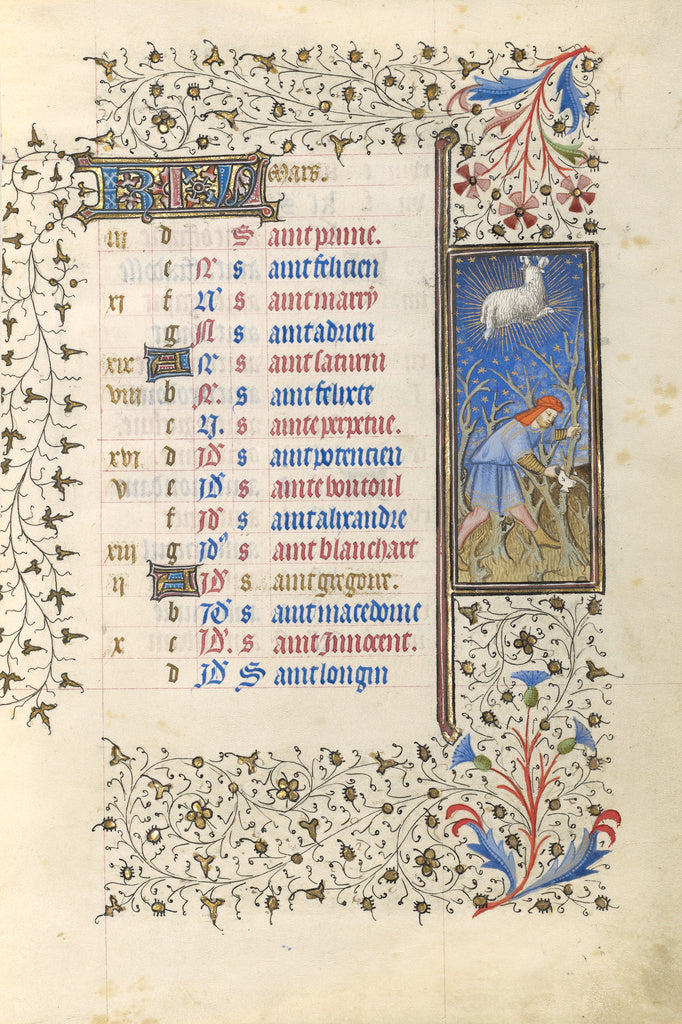 KL Mars.
iii d S aint prime.
e N s aint felicien
xi f N s aint marcy
g N s aint adrien
xix A N s aint saturni
viii b N. s aint felixce
N. s ainte perpetue.
xvi d Id s aint potencien
v e Id s ainte boutoul
f Id s aint alixandre
xiii g Id s aint blanchart
ii A Id s aint gregoire.
b Id s aint macedoine
x c Id. s aint Innocent.
d Id S aint longin